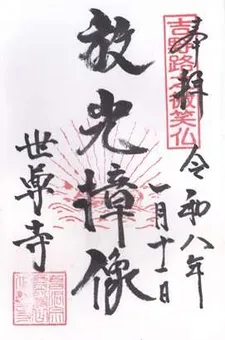 奉拝
吉野路 微笑仏
令和八年
一月十一日
放光樟像
世尊寺